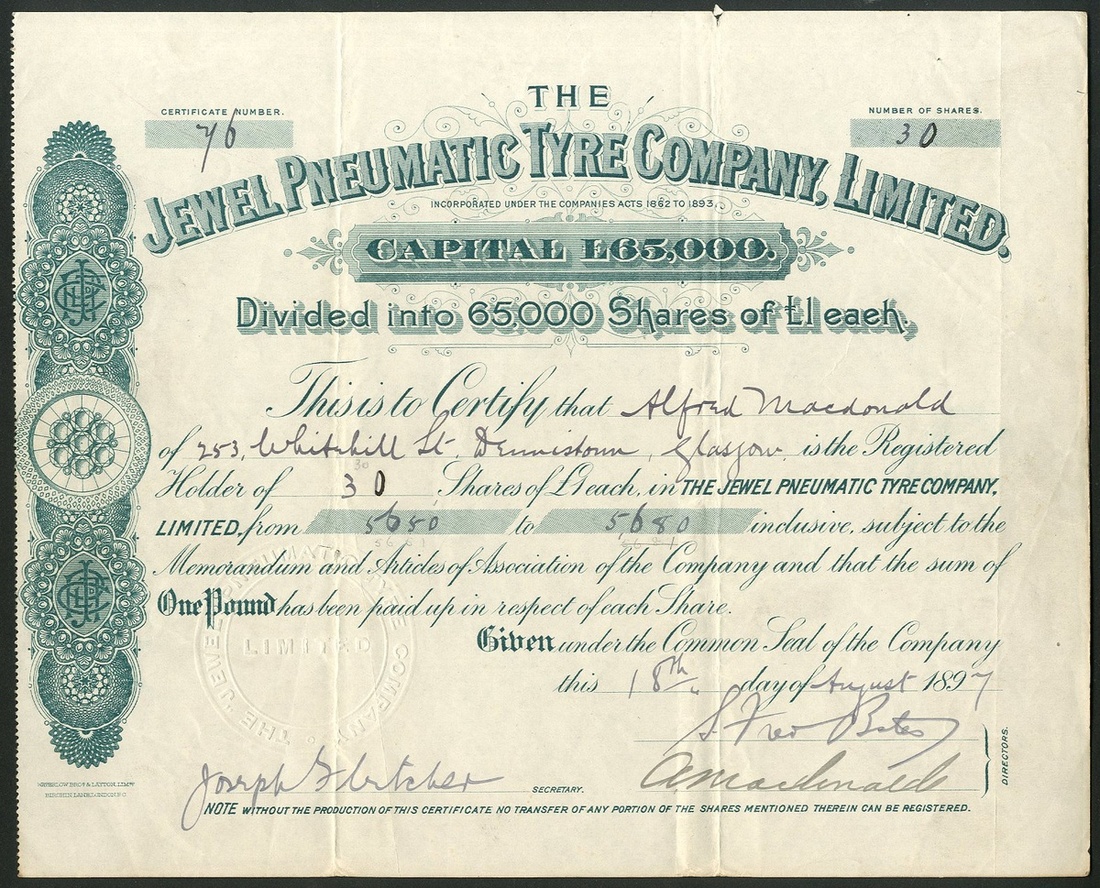 THE
CERTIFICATE NUMBER.
76
NUMBER OF SHARES.
30
JEWEL PNEUMATIC TYRE COMPANY, LIMITED.
INCORPORATED UNDER THE COMPANIES ACTS 1862 TO 1893.
CAPITAL £65,000.
Divided into 65,000 Shares of £1 each.
This is to Certify that Alfred Macdonald
of 253, Whitehill St. Dennistoun, Glasgow, is the Registered
30
Holder of 30 Shares of £1 each, in THE JEWEL PNEUMATIC TYRE COMPANY,
LIMITED, from 5650 to 5680 inclusive, subject to the
5651
Memorandum and Articles of Association of the Company and that the sum of
One Pound has been paid up in respect of each Share.
Given under the Common Seal of the Company
this 18th day of August 1897
THE JEWEL PNEUMATIC TYRE COMPANY
LIMITED
S. Fred Bates
AMacdonald
DIRECTORS.
Joseph Fletcher SECRETARY.
WATERLOW BROS & LAYTON, LIMD
BIRCHIN LANE, LONDON E C
NOTE WITHOUT THE PRODUCTION OF THIS CERTIFICATE NO TRANSFER OF ANY PORTION OF THE SHARES MENTIONED THEREIN CAN BE REGISTERED.